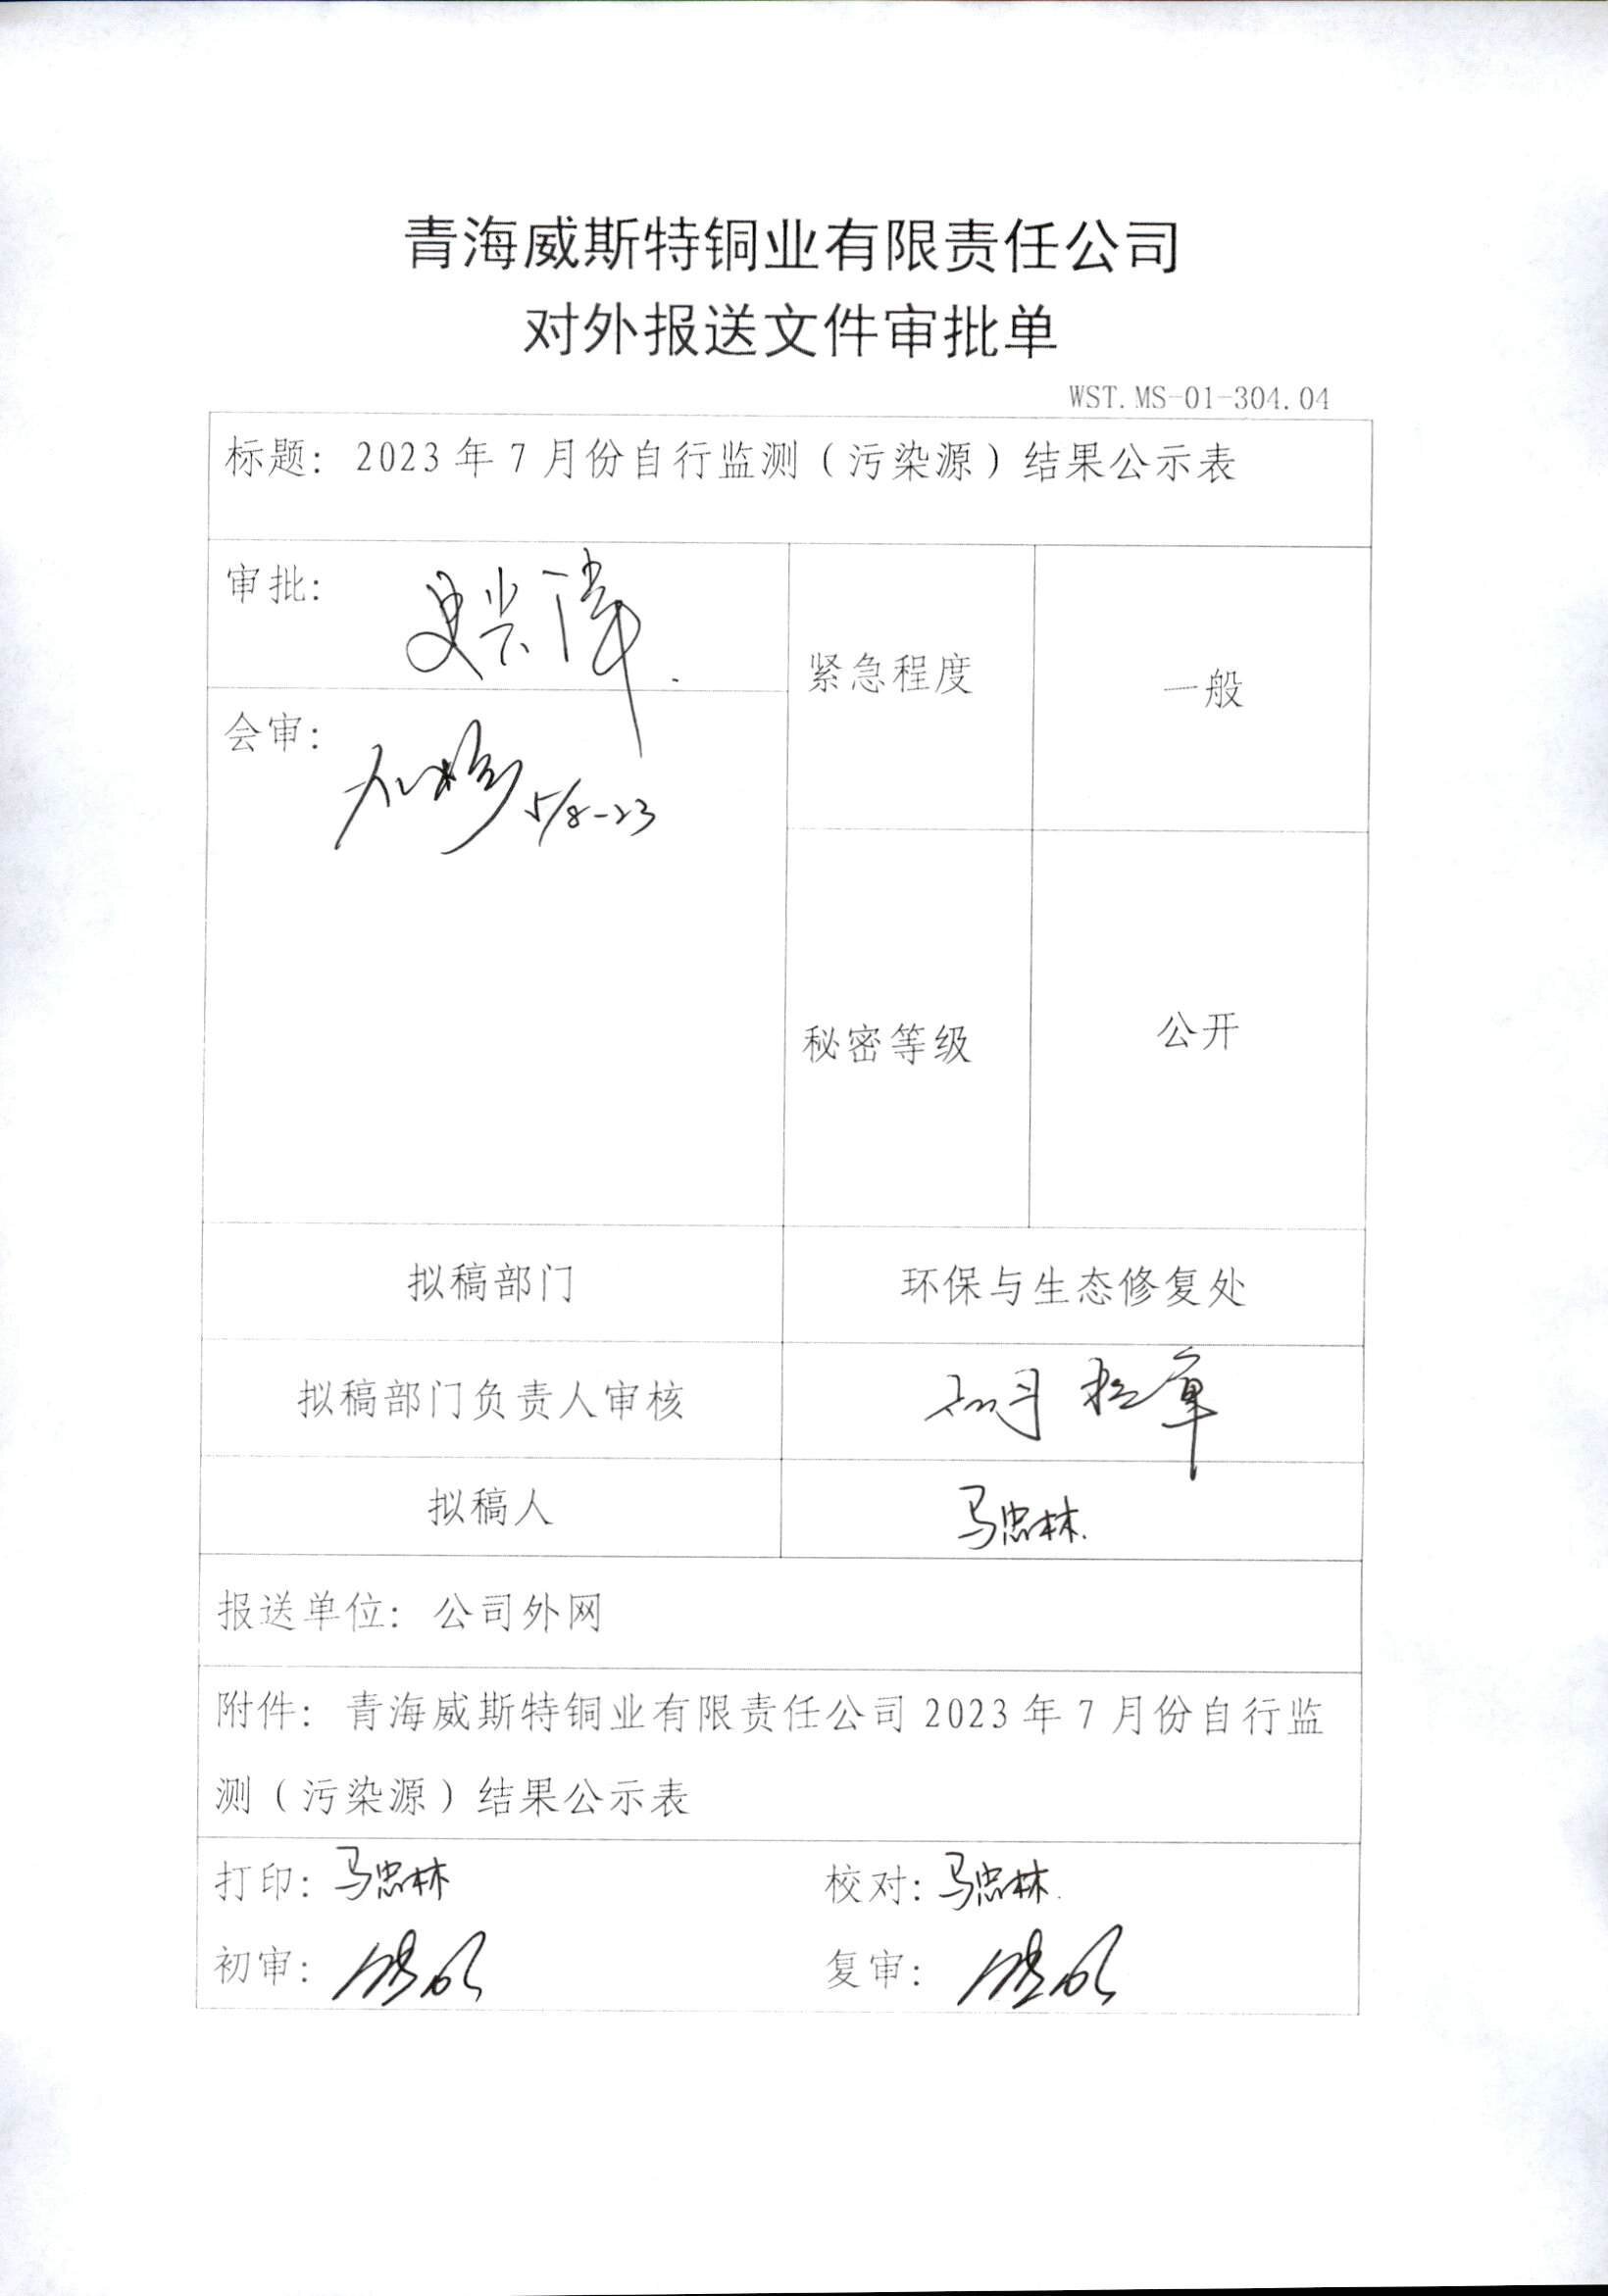 青海威斯特铜业有限责任公司
对外报送文件审批单
WST.MS-01-304.04
标题：2023年7月份自行监测（污染源）结果公示表
审批：
紧急程度
一般
会审：
5/8-23
秘密等级
公开
拟稿部门
环保与生态修复处
拟稿部门负责人审核
拟稿人
马忠林
报送单位：公司外网
附件：青海威斯特铜业有限责任公司2023年7月份自行监
测（污染源）结果公示表
打印：马忠林
校对：马忠林
初审：
复审：